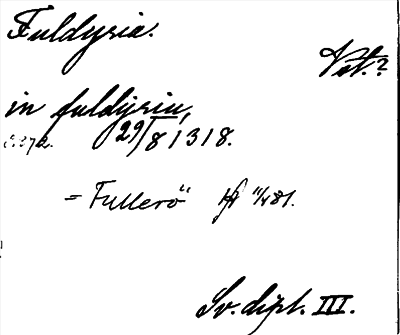 Fuldyria.
Vst.?
in fuldyriu,
S. 372. 29/8 1318.
= Fullerö" 11/4 81.
Sv. dipl. III.